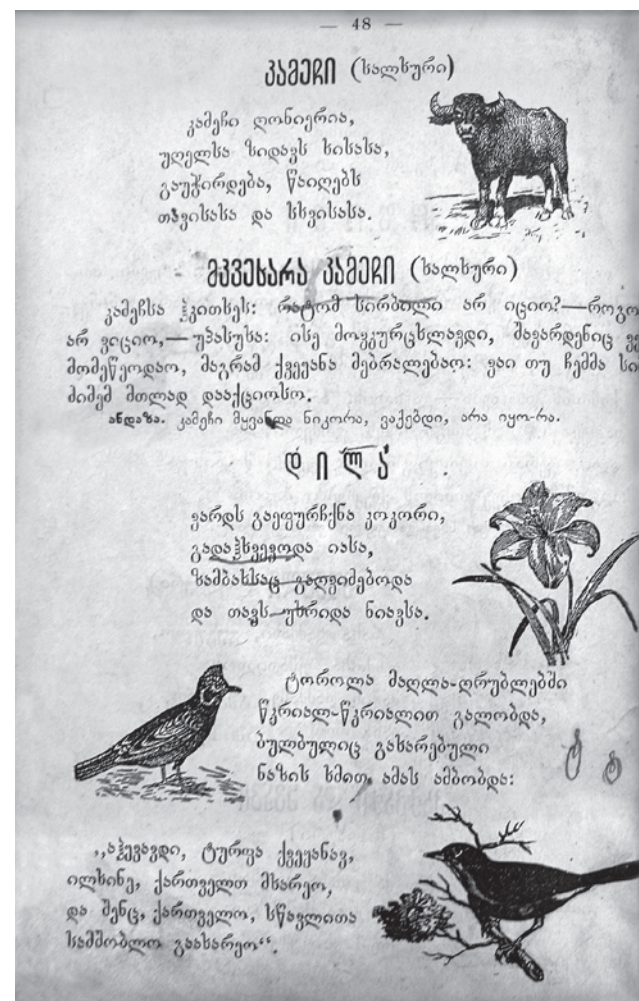 — 48 —
კამეჩი (ხალხური)
კამეჩი ღონიერია,
უღელსა ზიდავს ხისასა,
გაუჭირდება, წაიღებს
თავისასა და სხვისასა.
მკვეხარა კამეჩი (ხალხური)
კამეჩსა ჰკითხეს: რატომ სირბილი არ იციო?—როგო
არ ვიციო,— უპასუხა: ისე მოვკურცხლავდი, შავარდენიც ვე
მომეწეოდაო, მაგრამ ქვეყანა მებრალებაო: ვაი თუ ჩემმა სი
მიმემ მთლად დააქციოსო.
ანდაზა. კამეჩი მყვანდა ნიკორა, ვაქებდი, არა იყო-რა.
დილა
ვარდს გაეფურჩქნა კოკორი,
გადაჰხვეოდა იასა,
ზამბახსაც გაღვიძებოდა
და თავს უხრიდა ნიავსა.
ტოროლა მაღლა-ღრუბლებში
წკრიალ-წკრიალით გალობდა,
ბულბულიც გახარებული
ნაზის ხმით ამას ამბობდა:
„აჰყვავდი, ტურფა ქვეყანავ,
ილხინე, ქართველთ მხარეო,
და შენც, ქართველო, სწავლითა
სამშობლო გაახარეო“.